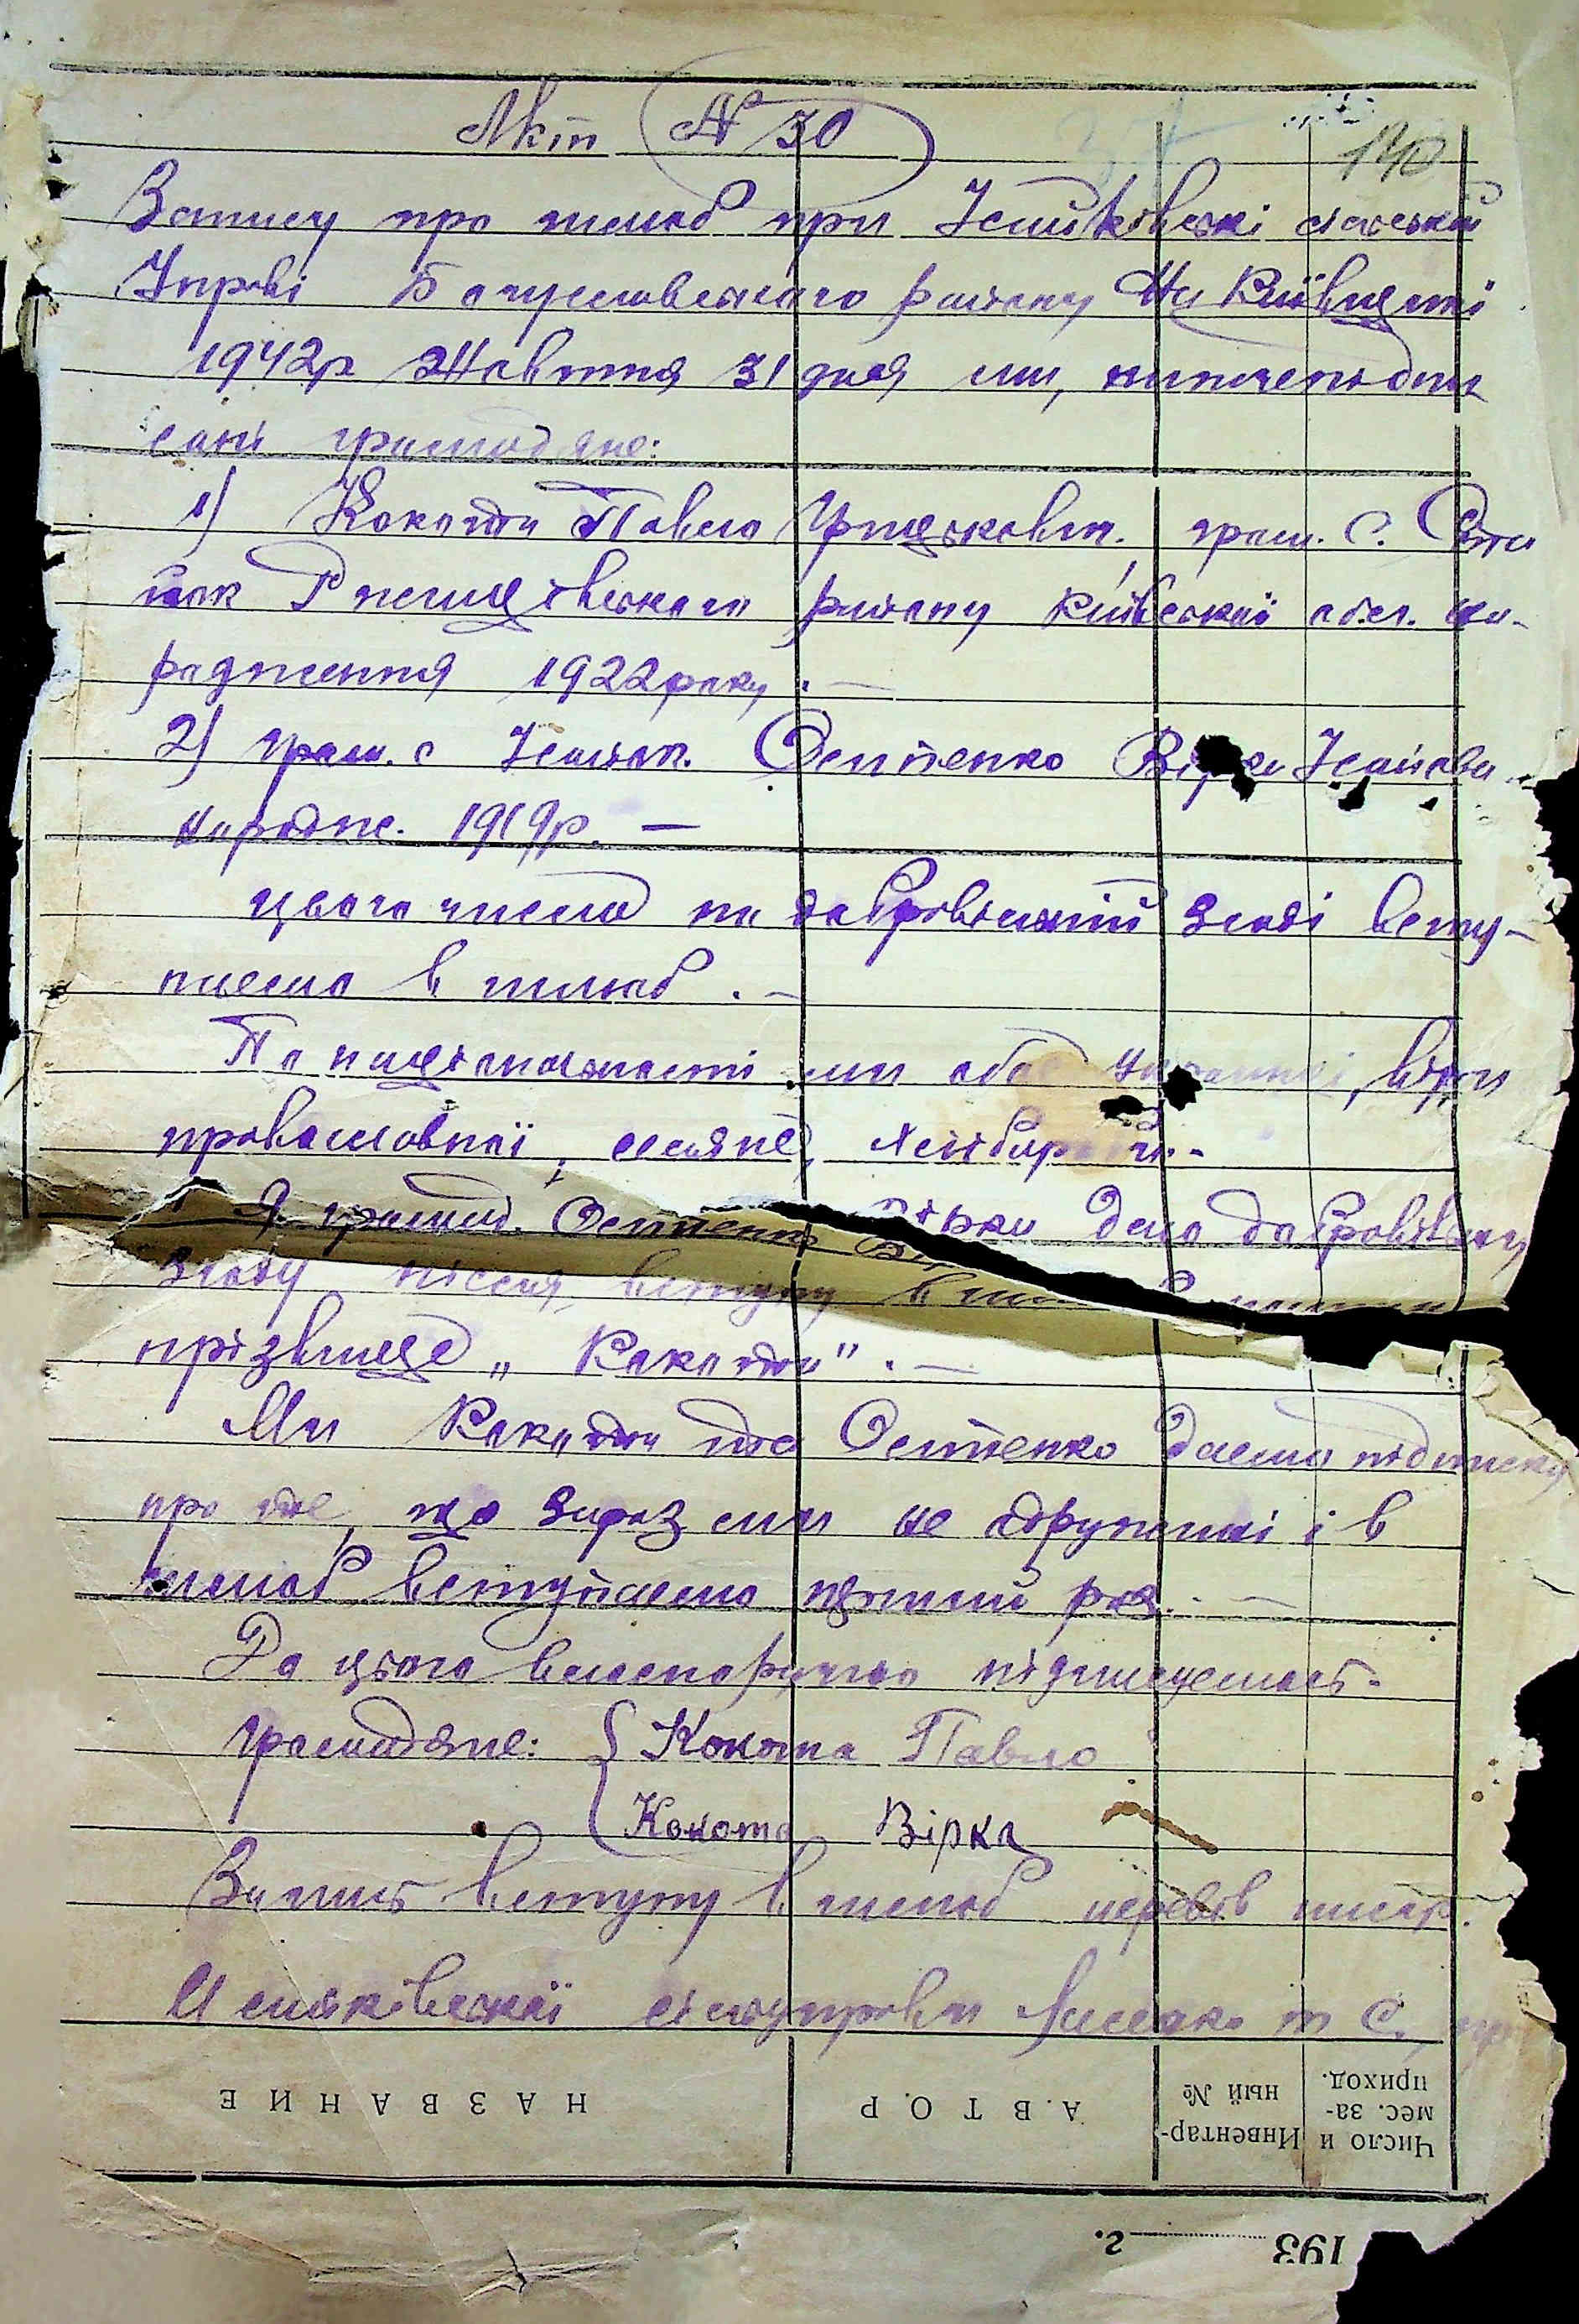 Акт № 30
140
Запису про шлюб при Ісайківські сільській
Управі Богуславського району На Київщині
1942р Жовтня 31 дня ми, нижчепідпи
сані громодяне:
1) Кокота Павло Грицькович. гром. С.
району Київської обл. на-
родження 1922 року. —
2) гром. с Ісайок. Остпенко Вірка Ісакова
народже. 1919р. —
цього числа по добровільній згоді всту-
паємо в шлюб. —
По націанальности ми обоє украинці, віри
православної, селяне, хлібороби.-
Я громад. Остпенко Вірка даю добровільну
згоду після вступу в
прізвище „Кокота". —
Ми Кокота та Остпенко даємо підписку
про те, що зараз ми не одружені і в
шлюб вступаємо перший раз. —
До цього власноручно підписуемось.
громадяне: Кокота Павло
Кокота Вірка
Запись вступу в шлюб перевів писар.
Ісайківської сільуправи С.
НАЗВАНИЕ
АВТОР
Инвентар-
ный №
Число и
мес. за-
приход.
193 г.